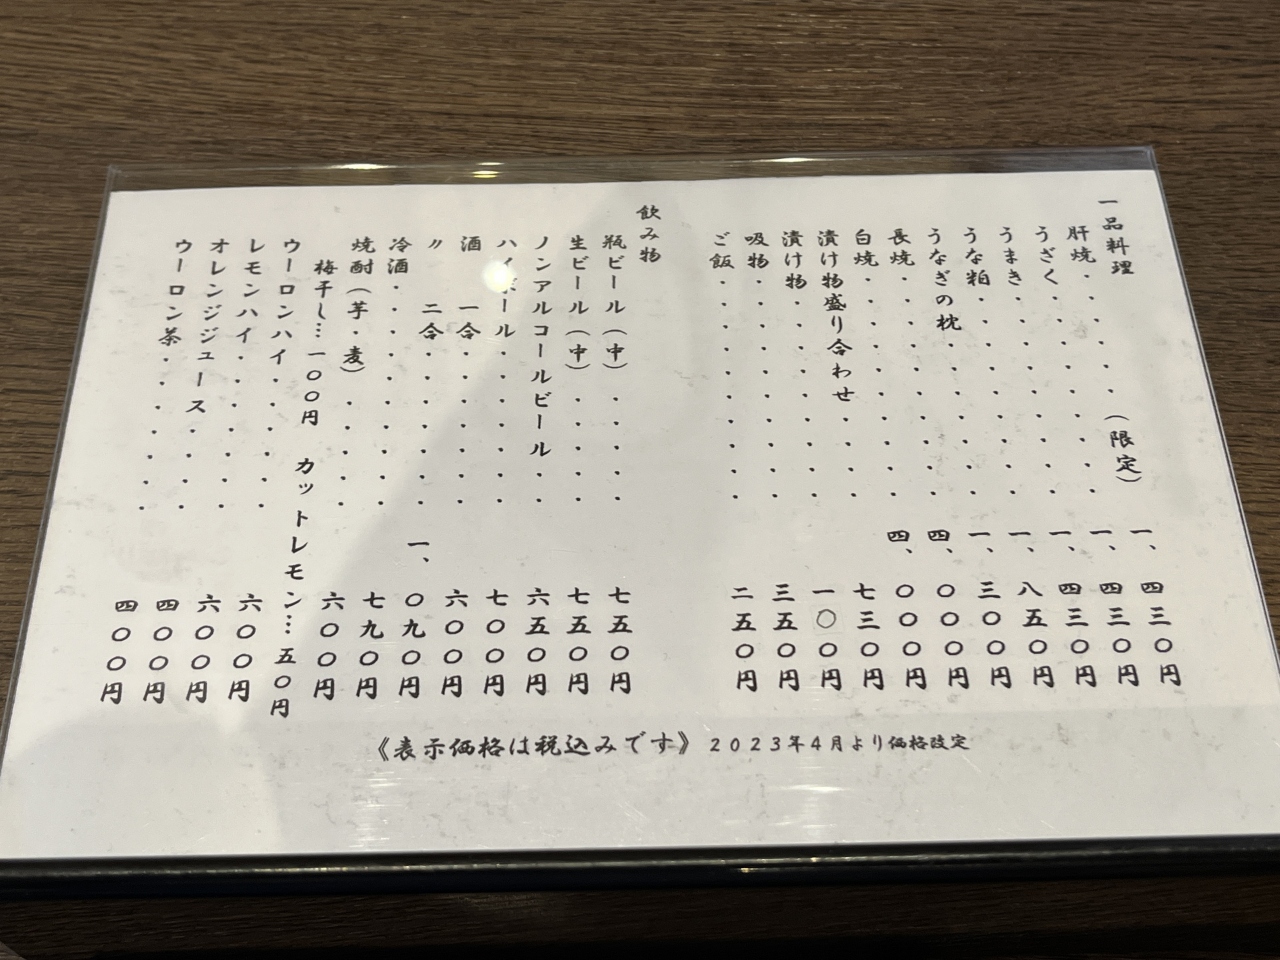 一品料理
肝焼・・・(限定)一、四三〇円
うざく・・・・・一、四三〇円
うまき・・・・・一、四三〇円
うな粕・・・・・一、八五〇円
うなぎの枕・・・・一、三〇〇円
長焼・・・・・・四、〇〇〇円
白焼・・・・・・四、〇〇〇円
漬け物盛り合わせ・・七三〇円
漬け物・・・・・一〇〇円
吸物・・・・・・三五〇円
ご飯・・・・・・二五〇円
飲み物
瓶ビール(中)・・・七五〇円
生ビール(中)・・・七五〇円
ノンアルコールビール・六五〇円
ハイボール・・・・七〇〇円
酒 一合・・・・六〇〇円
〃 二合・・・・一、〇九〇円
冷酒・・・・・・七九〇円
焼酎(芋・麦)・・・六〇〇円
梅干し…一〇〇円 カットレモン…五〇円
ウーロンハイ・・・・六〇〇円
レモンハイ・・・・六〇〇円
オレンジジュース・・・四〇〇円
ウーロン茶・・・・四〇〇円
《表示価格は税込みです》2023年4月より価格改定